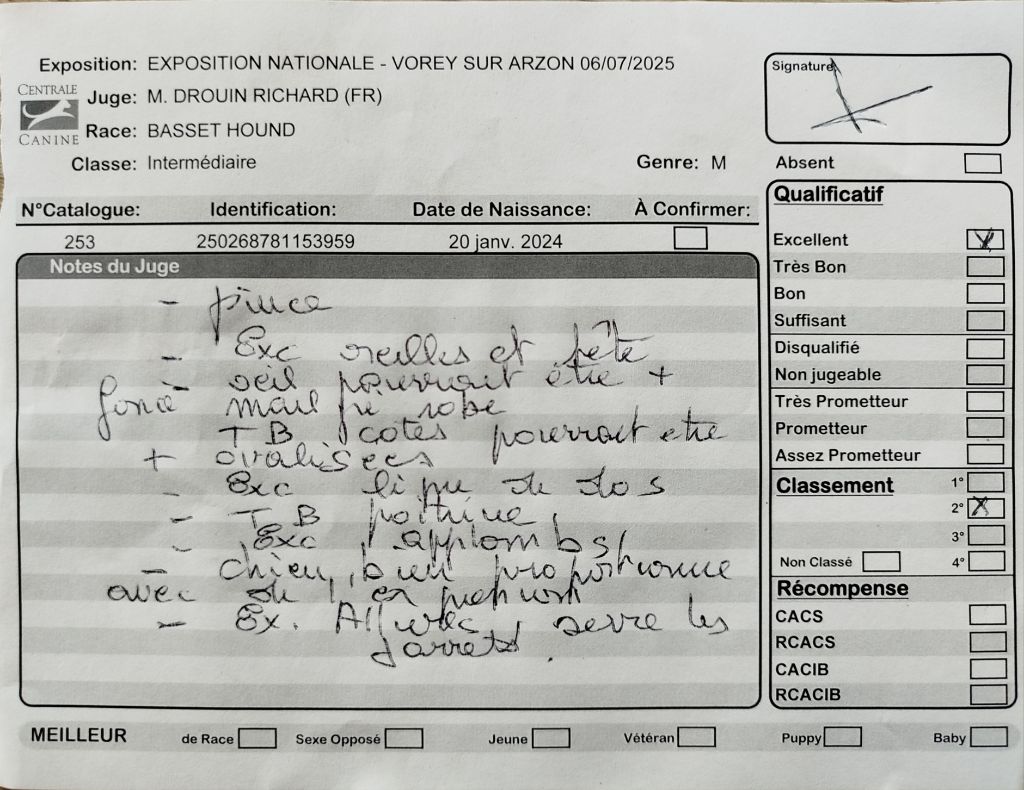 Exposition: EXPOSITION NATIONALE - VOREY SUR ARZON 06/07/2025
CENTRALE CANINE
Juge: M. DROUIN RICHARD (FR)
Race: BASSET HOUND
Classe: Intermédiaire
Genre: M
Signature
Absent
N°Catalogue: Identification: Date de Naissance: À Confirmer:
253 250268781153959 20 janv. 2024
Notes du Juge
- pince
- Exc oreilles et tête
- oeil pourrait être +
foncé mail robe
TB cotes pourrait etre
+ ovalisées
- Exc ligne de dos
- TB poitrine
- Exc applombs
- chien bien proportionné
avec de l'expression
- Ex. Allures, serre les
jarrets.
Qualificatif
Excellent X
Très Bon
Bon
Suffisant
Disqualifié
Non jugeable
Très Prometteur
Prometteur
Assez Prometteur
Classement 1°
2° X
3°
Non Classé 4°
Récompense
CACS
RCACS
CACIB
RCACIB
MEILLEUR de Race Sexe Opposé Jeune Vétéran Puppy Baby